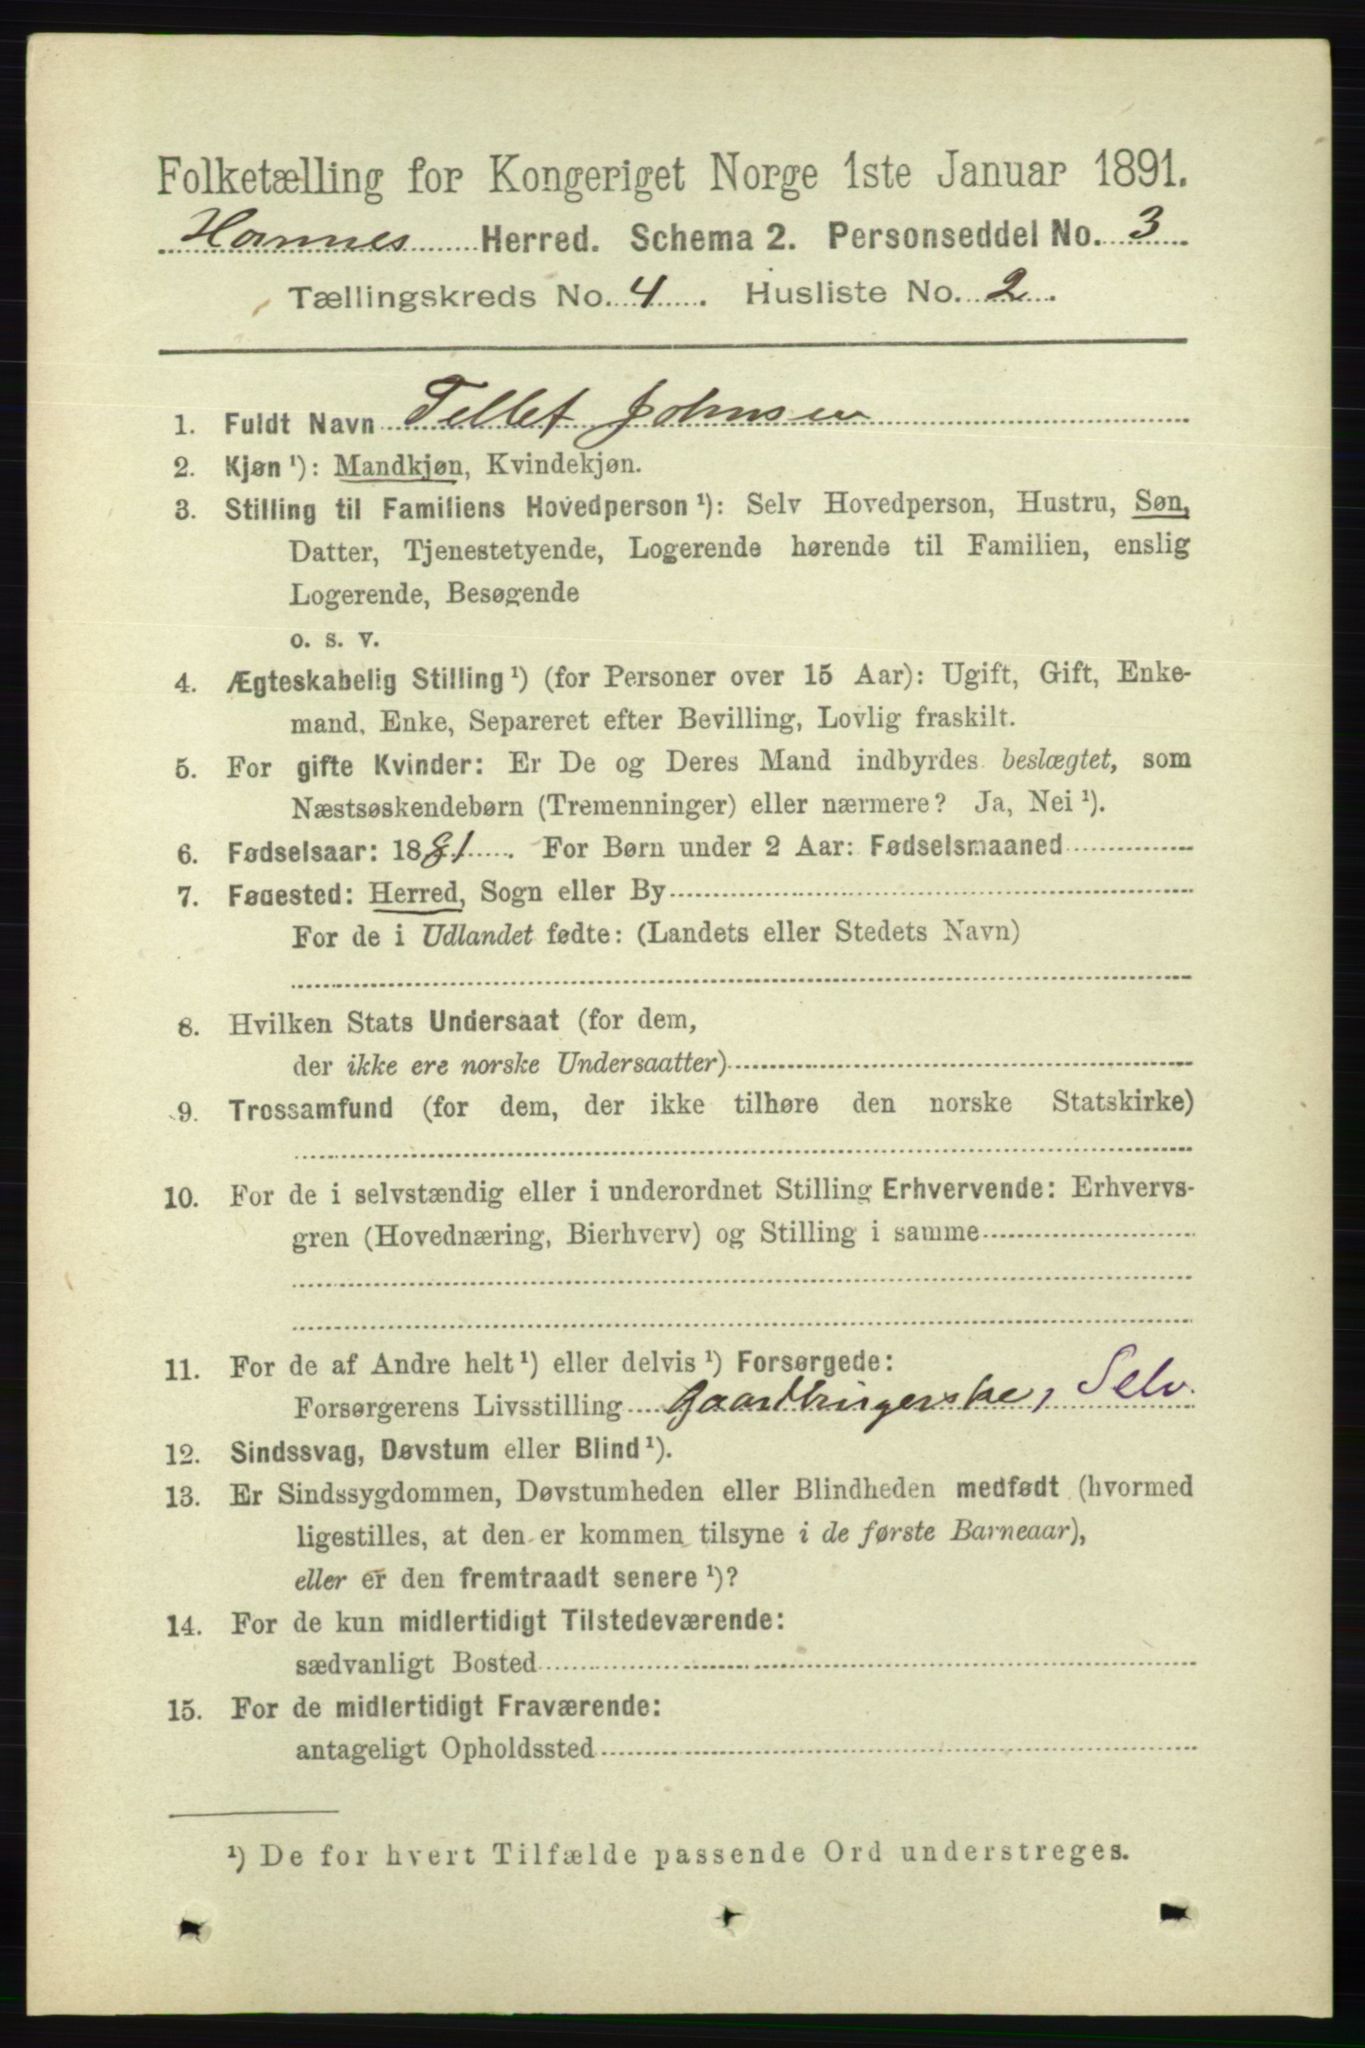 Folketælling for Kongeriget Norge 1ste Januar 1891.
Hornnes Herred. Schema 2. Personseddel No. 3
Tællingskreds No. 4. Husliste No. 2.
1. Fuldt Navn Tellef Johnsen
2. Kjøn ¹): Mandkjøn, Kvindekjøn.
3. Stilling til Familiens Hovedperson ¹): Selv Hovedperson, Hustru, Søn,
Datter, Tjenestetyende, Logerende hørende til Familien, enslig
Logerende, Besøgende
o. s. v.
4. Ægteskabelig Stilling ¹) (for Personer over 15 Aar): Ugift, Gift, Enke-
mand, Enke, Separeret efter Bevilling, Lovlig fraskilt.
5. For gifte Kvinder: Er De og Deres Mand indbyrdes beslægtet, som
Næstsøskendebørn (Tremenninger) eller nærmere? Ja, Nei ¹).
6. Fødselsaar: 1881. For Børn under 2 Aar: Fødselsmaaned
7. Fødested: Herred, Sogn eller By
For de i Udlandet fødte: (Landets eller Stedets Navn)
8. Hvilken Stats Undersaat (for dem,
der ikke ere norske Undersaatter)
9. Trossamfund (for dem, der ikke tilhøre den norske Statskirke)
10. For de i selvstændig eller i underordnet Stilling Erhvervende: Erhvervs-
gren (Hovednæring, Bierhverv) og Stilling i samme
11. For de af Andre helt ¹) eller delvis ¹) Forsørgede:
Forsørgerens Livsstilling Gaardbrugerske, Selv.
12. Sindssvag, Døvstum eller Blind ¹).
13. Er Sindssygdommen, Døvstumheden eller Blindheden medfødt (hvormed
ligestilles, at den er kommen tilsyne i de første Barneaar),
eller er den fremtraadt senere ¹)?
14. For de kun midlertidigt Tilstedeværende:
sædvanligt Bosted
15. For de midlertidigt Fraværende:
antageligt Opholdssted
¹) De for hvert Tilfælde passende Ord understreges.